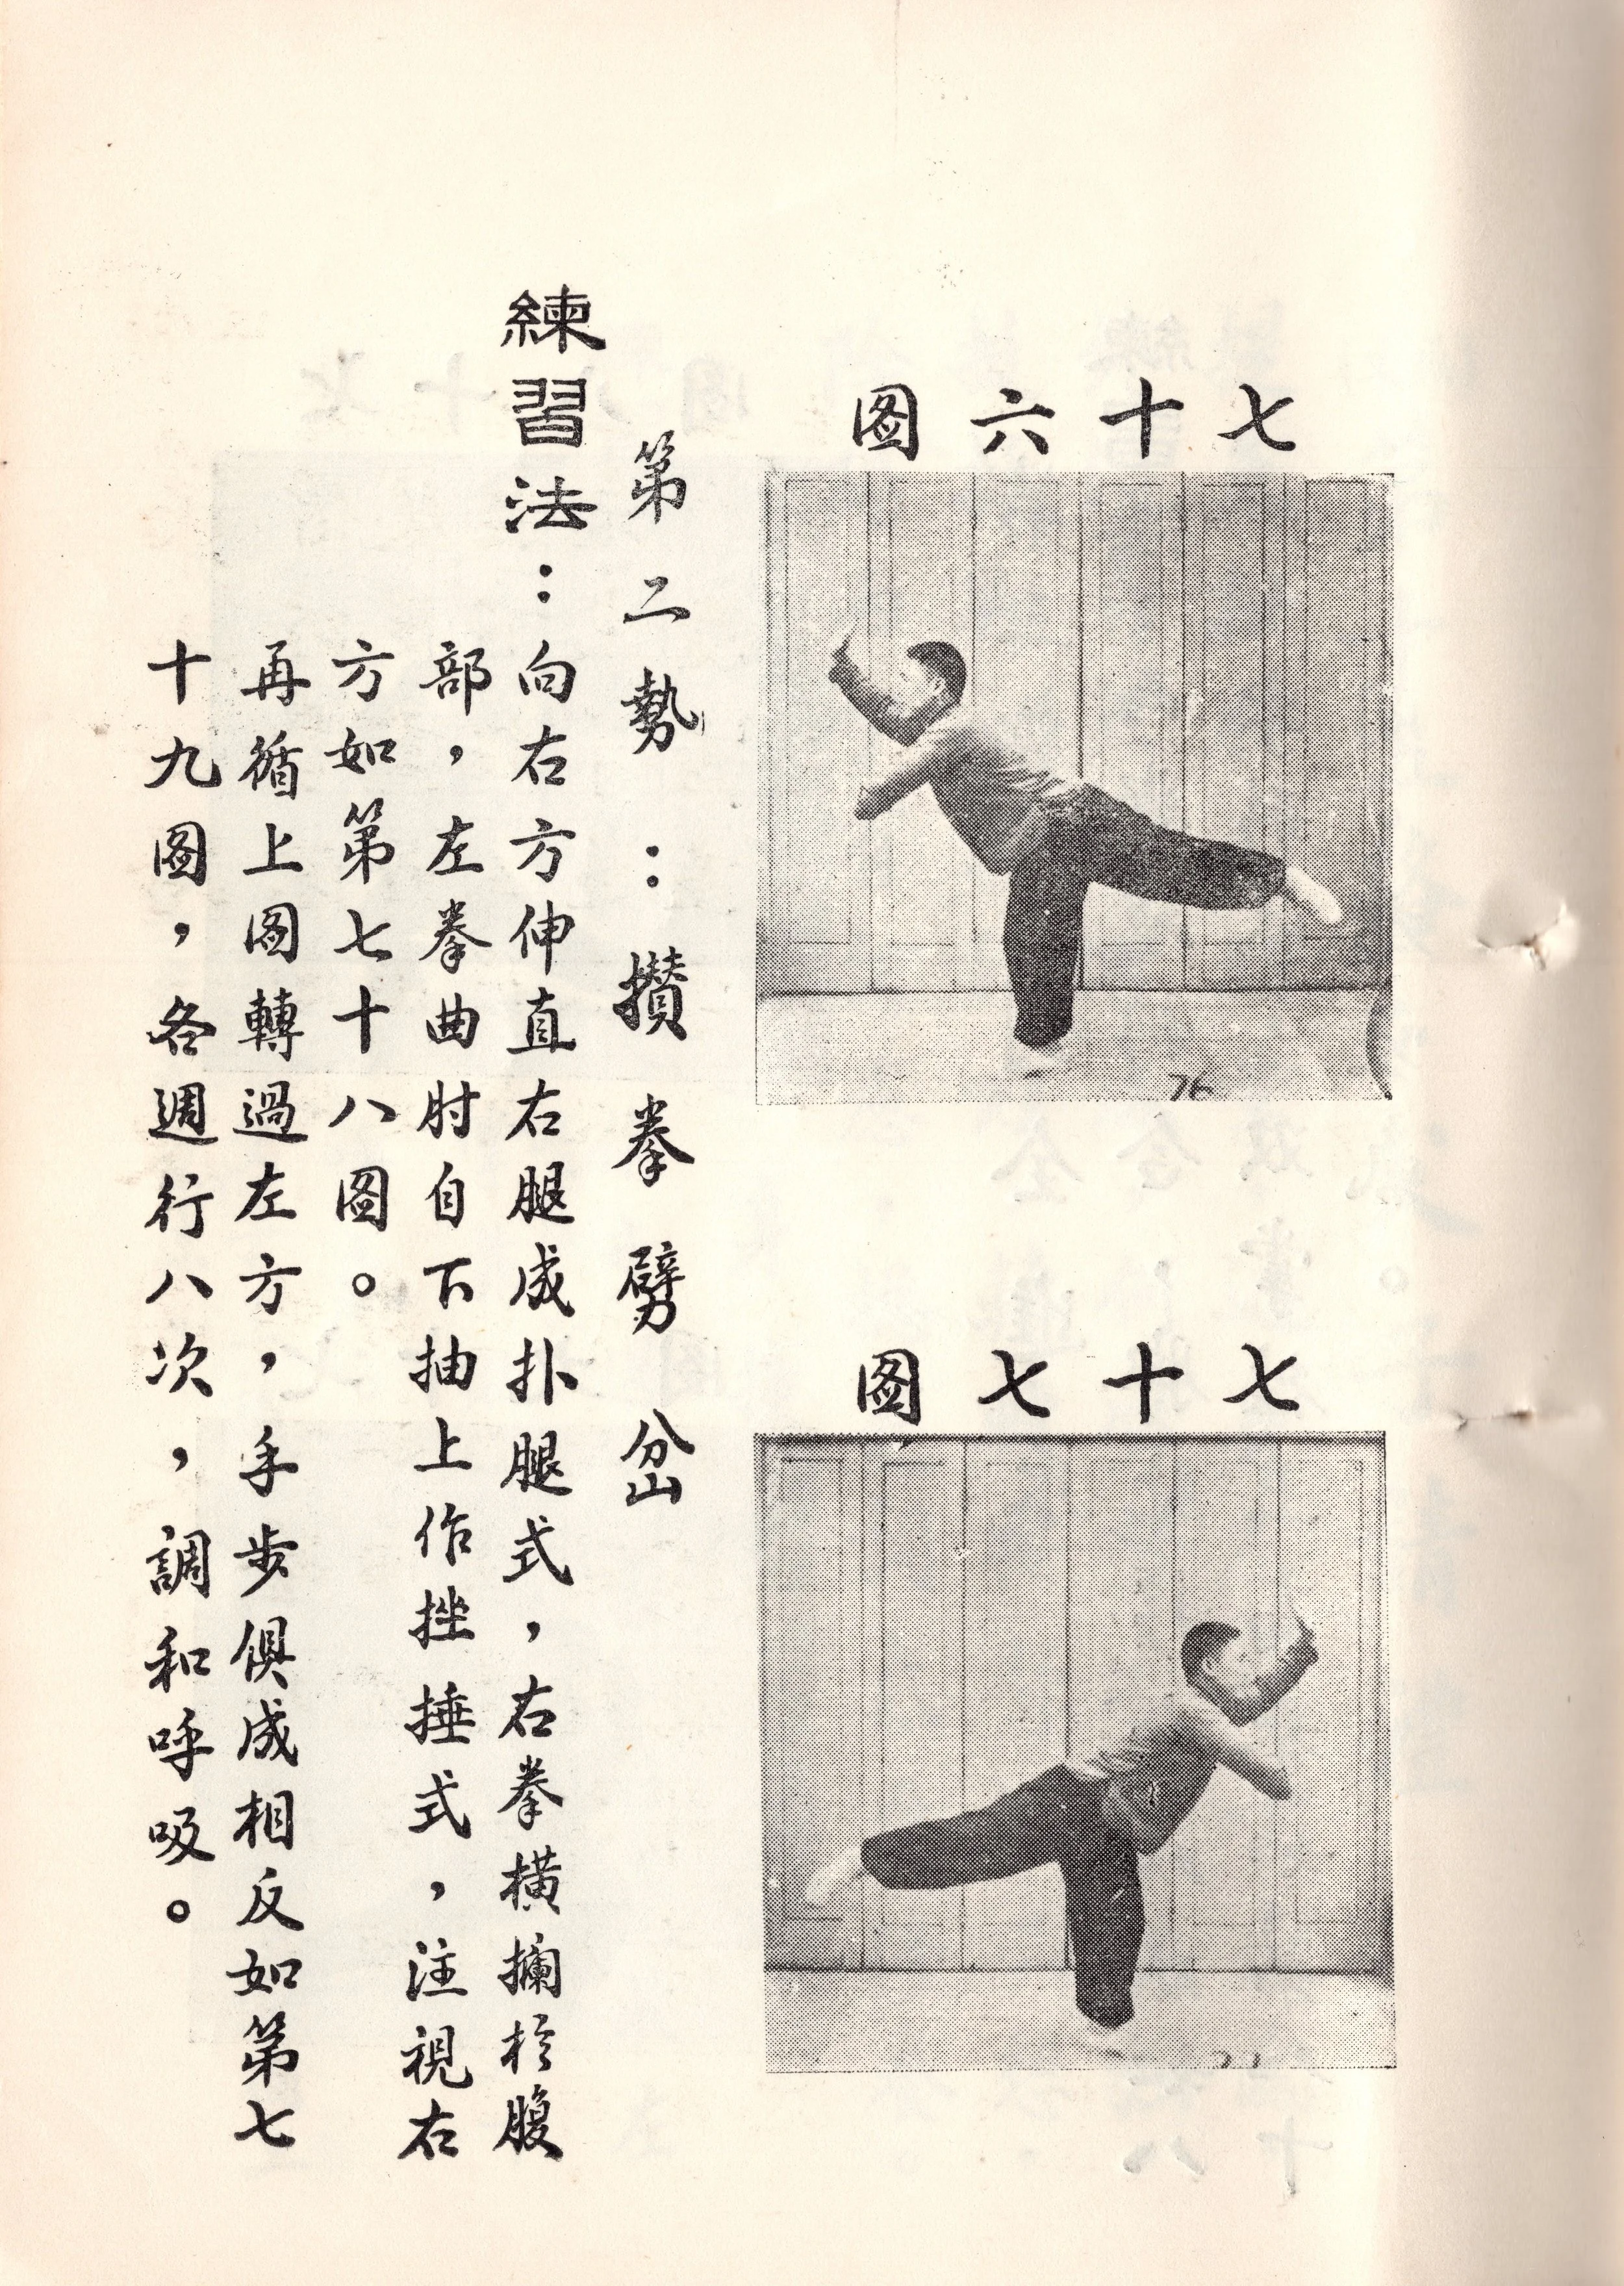 七十六圖
76
七十七圖
第二勢：攢拳劈岔
練習法：向右方伸直右腿成扑腿式，右拳橫攔於腹
部，左拳曲肘自下抽上作挫捶式，注視右
方如第七十八圖。
再循上圖轉過左方，手步俱成相反如第七
十九圖，各週行八次，調和呼吸。